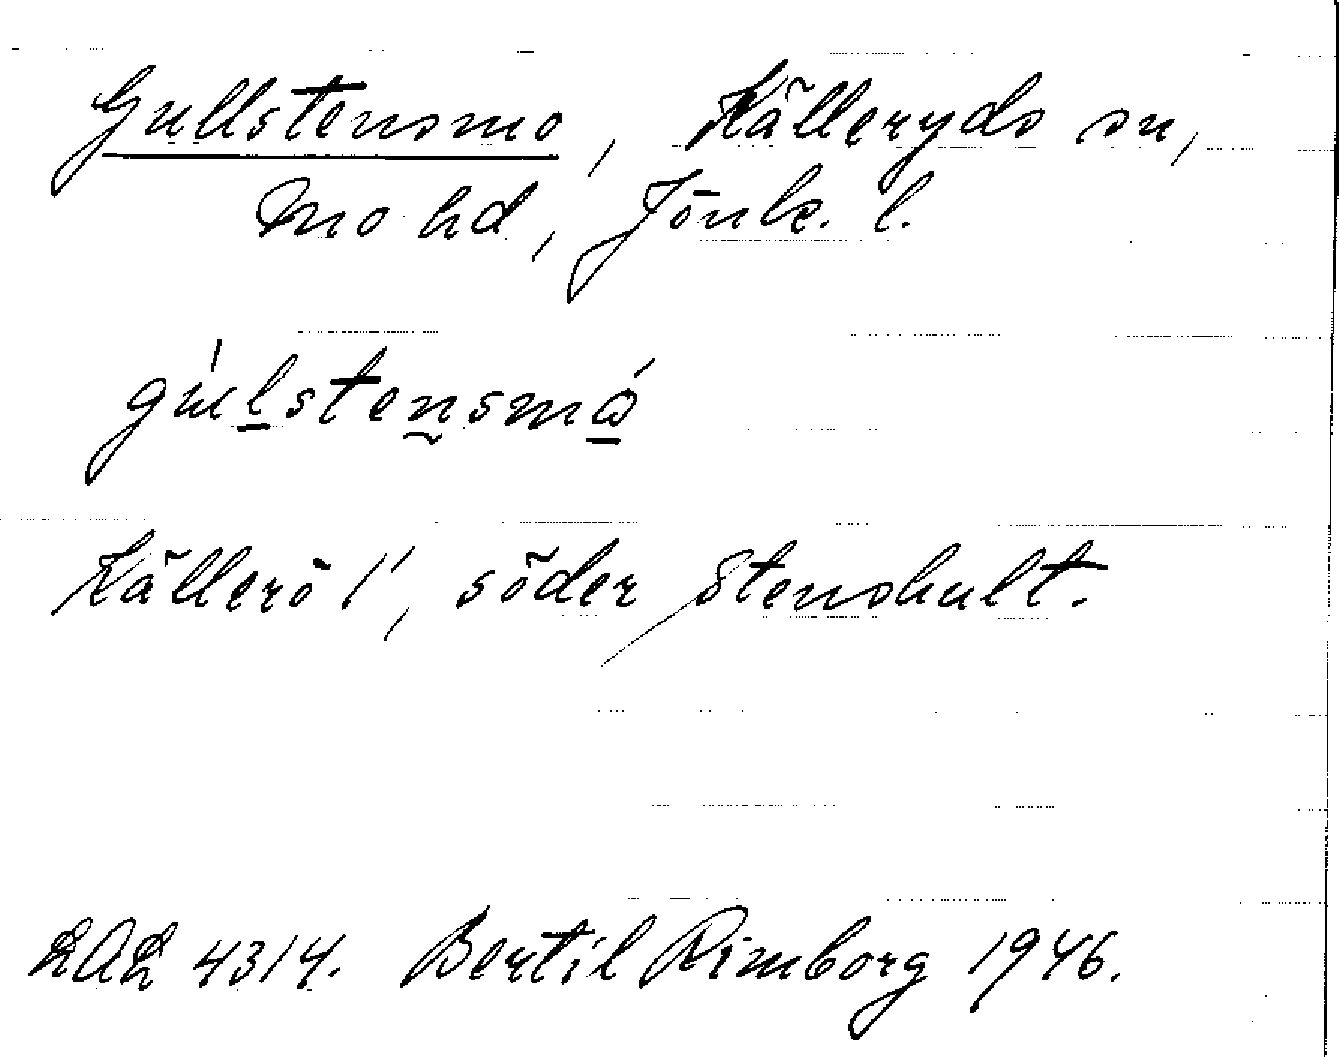 Gullstensmo, Källeryds sn,
Mo hd, Jönk. l.
gúlstensmó
Källerö 1¹, söder Stenshult.
LAL 4314. Bertil Rimborg 1946.